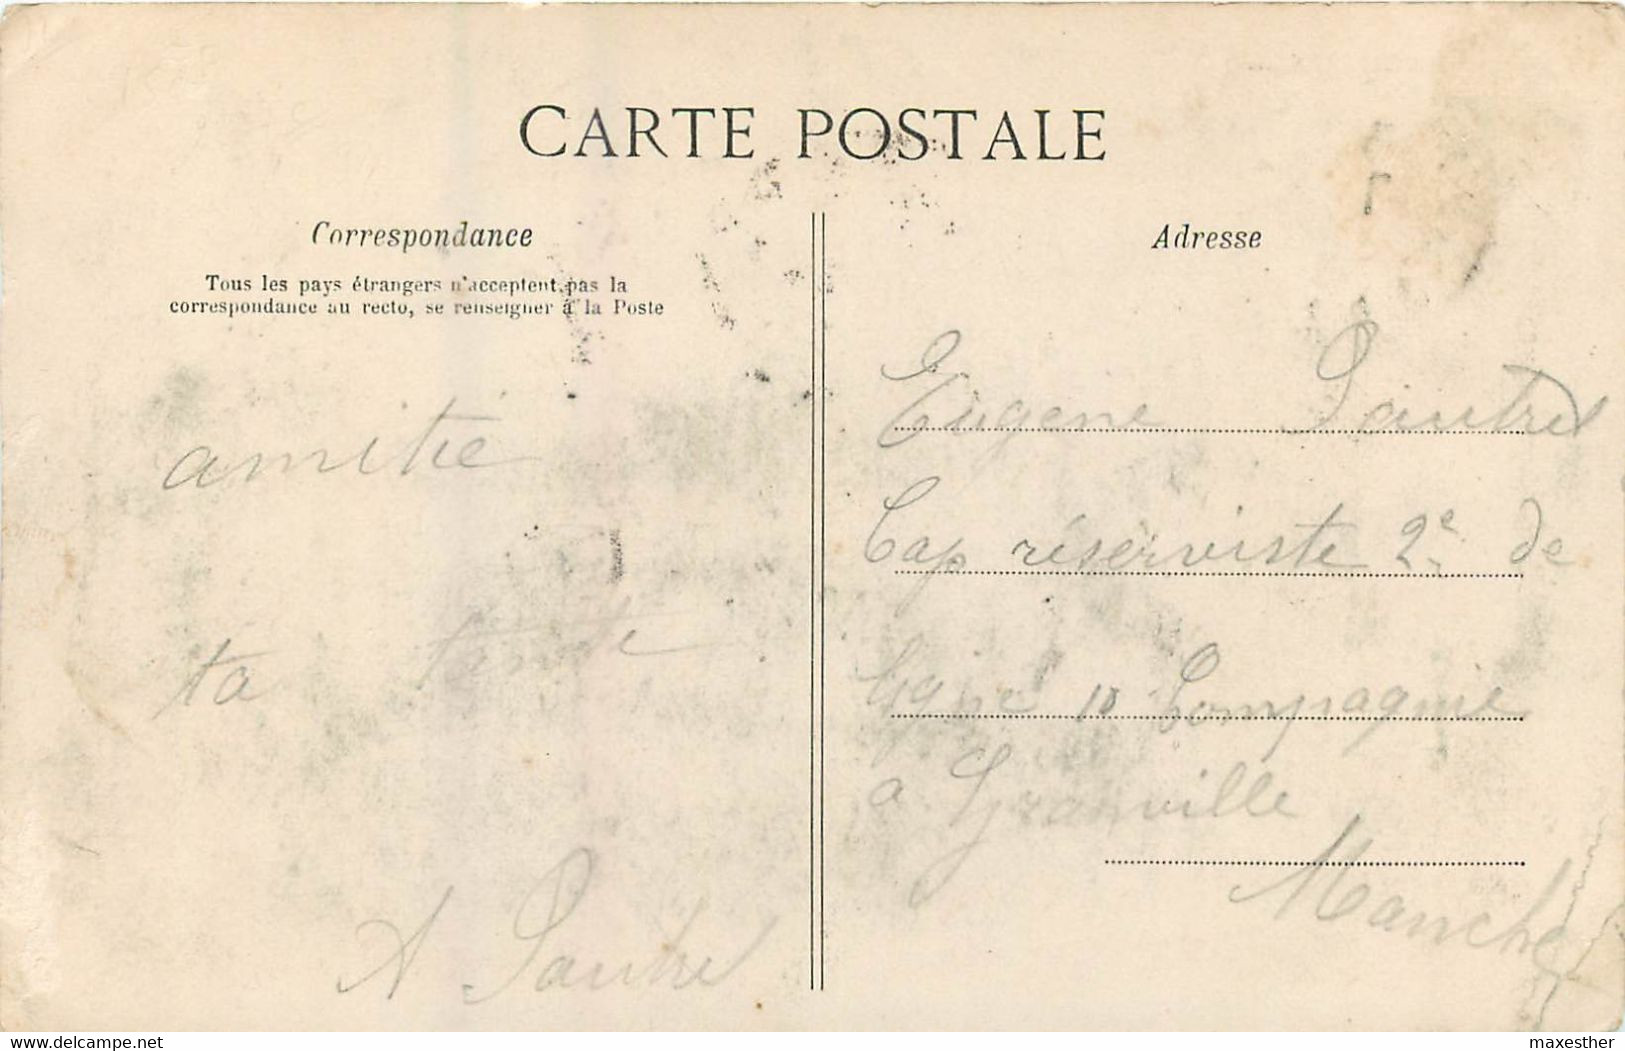 CARTE POSTALE
Correspondance
Tous les pays étrangers n'acceptent pas la
correspondance au recto, se renseigner à la Poste
amitié
ta tante
A Sautrel
Adresse
Eugene Sautrel
Cap réserviste 2e de
ligne 10 Compagnie
a Granville
Manche
delcampe.net
maxesther